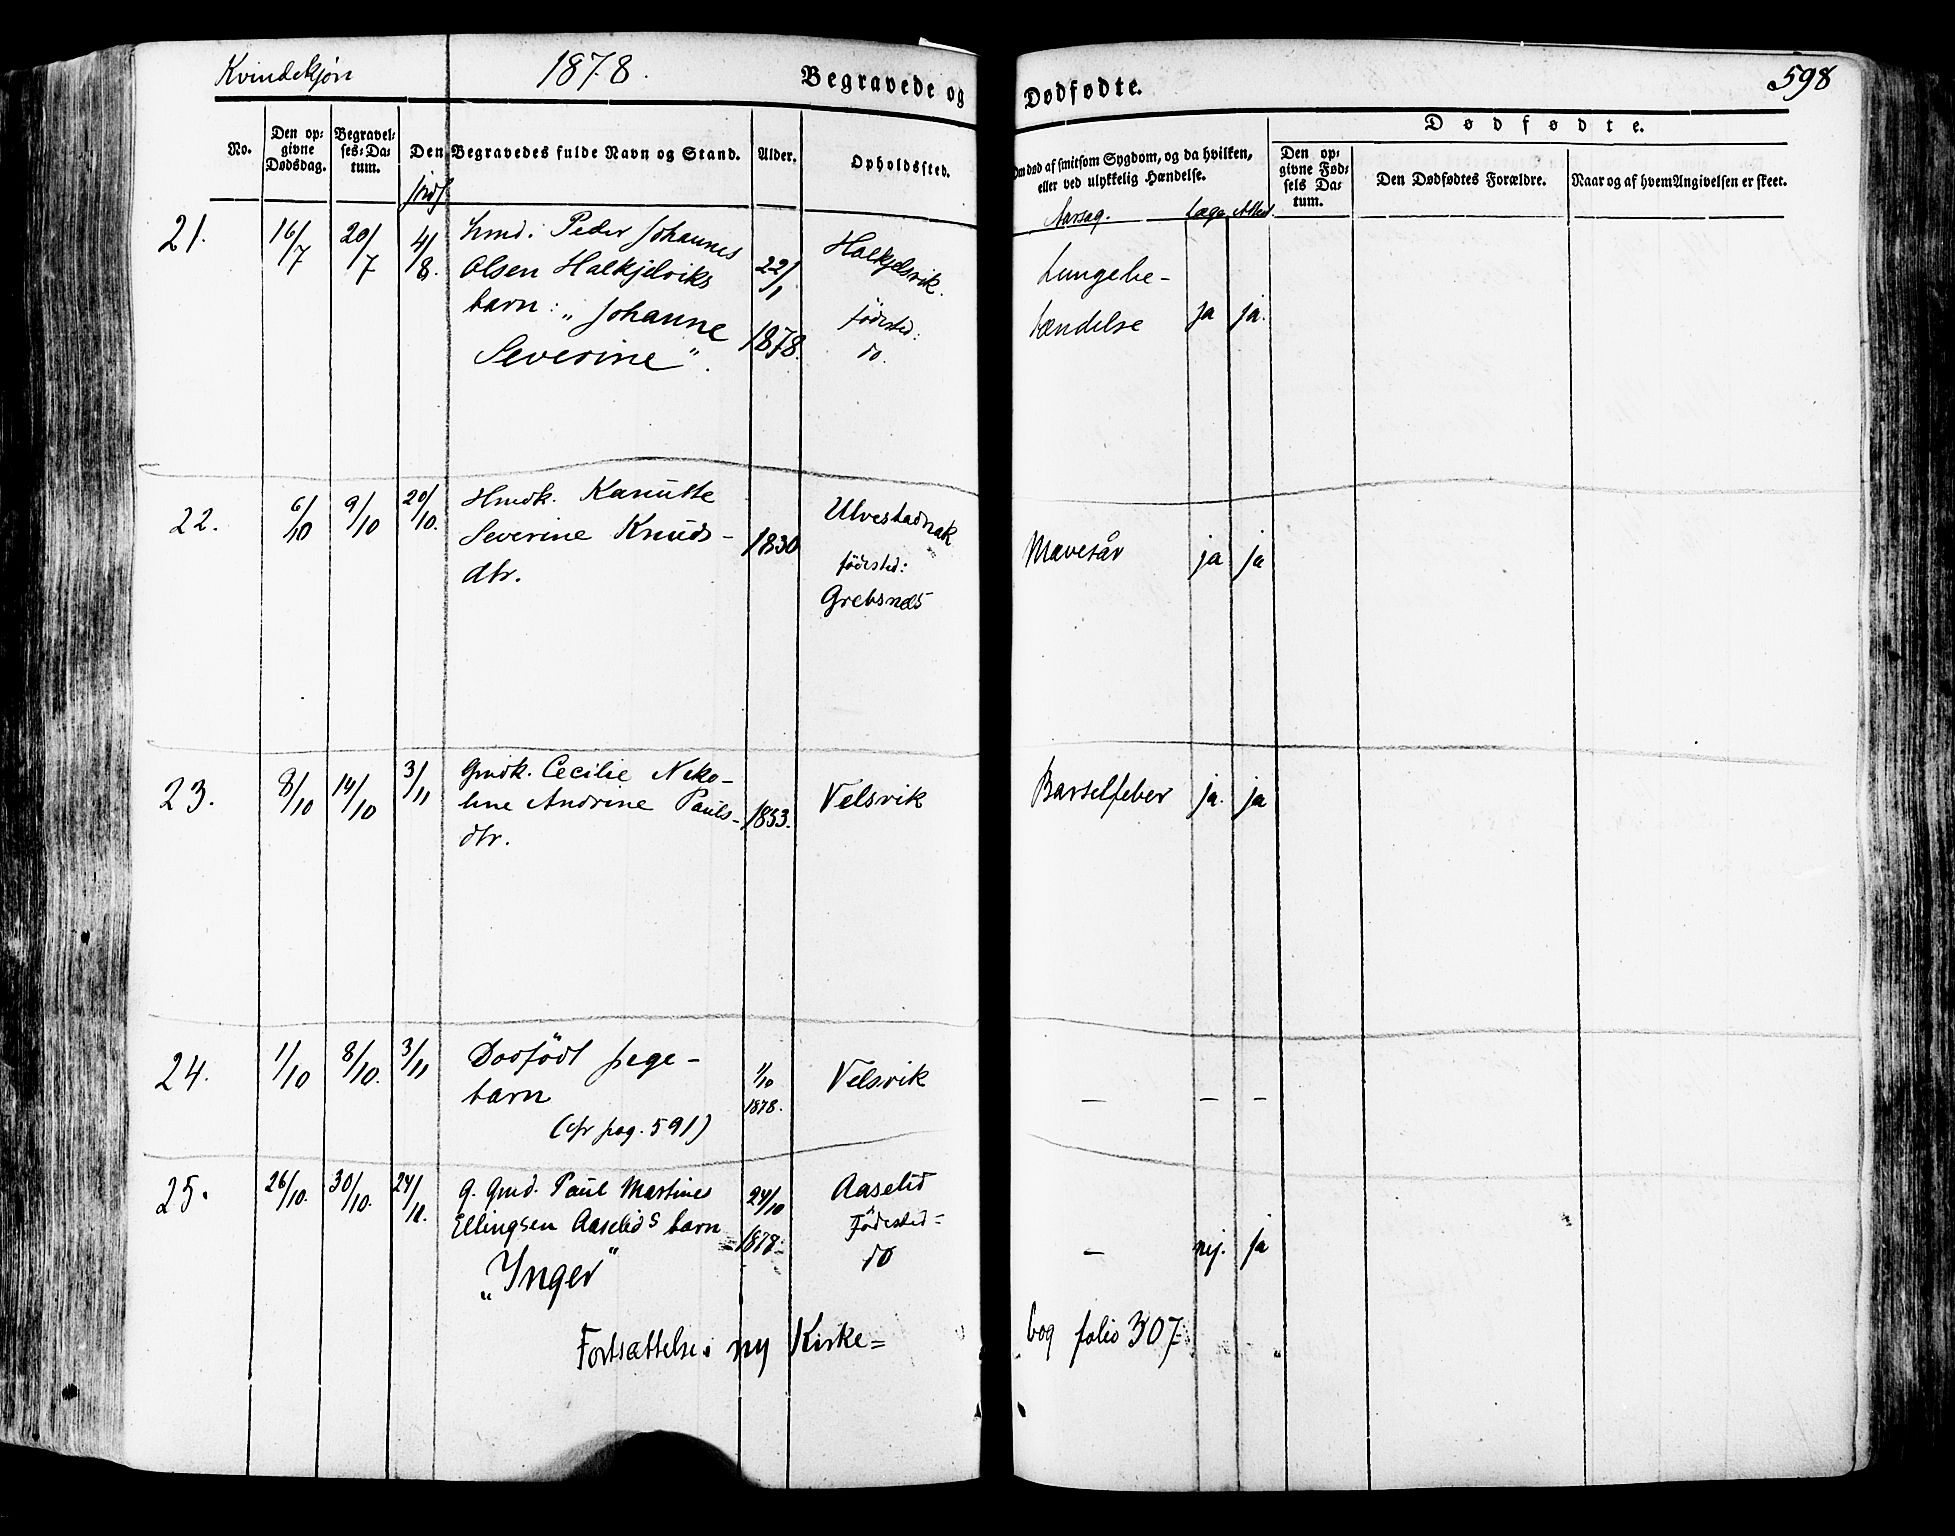 Kvindekjøn 1878. Begravede og Dødfødte. 598
No. Den opgivne Dødsdag. Begravelses-Datum. Den Begravedes fulde Navn og Stand. Alder. Opholdssted. Om død af smitsom Sygdom, og da hvilken, eller ved ulykkelig Hændelse. Dødfødte. Den opgivne Fødsels Datum. Den Dødfødtes Forældre. Naar og af hvem Angivelsen er skeet.
jordf. Aarsag. Læge Attest.
21. 16/7 20/7 4/8 Hmd. Peder Johannes
Olsen Halkjelviks 22/1 Halkjelsvik. Lungebe-
barn: „Johanne 1878. fødested: tændelse ja ja.
Severine". do.
22. 6/10 9/10 20/10. Hmdk. Kanutte Ulvestadnak
Severine Knuds- 1830 fødested: Mavesår ja ja
dtr. Grebsnæs
23. 8/10 14/10 3/11 Gmdk. Cecilie Niko-
line Andrine Pauls- 1853. Velsvik Barselfeber ja. ja
dtr.
24. 1/10 8/10. 3/11 Dødfødt pige- 1/10 Velsvik
barn 1878. — — —
(cfr pag. 591)
25. 26/10. 30/10. 24/11. G. Gmd. Paul Martines 24/10 Aaselid
Ellingsen Aaselids barn 1878. Fødested=
„Inger" do — nej. ja
Fortsættelse i ny Kirke= bog folio 307